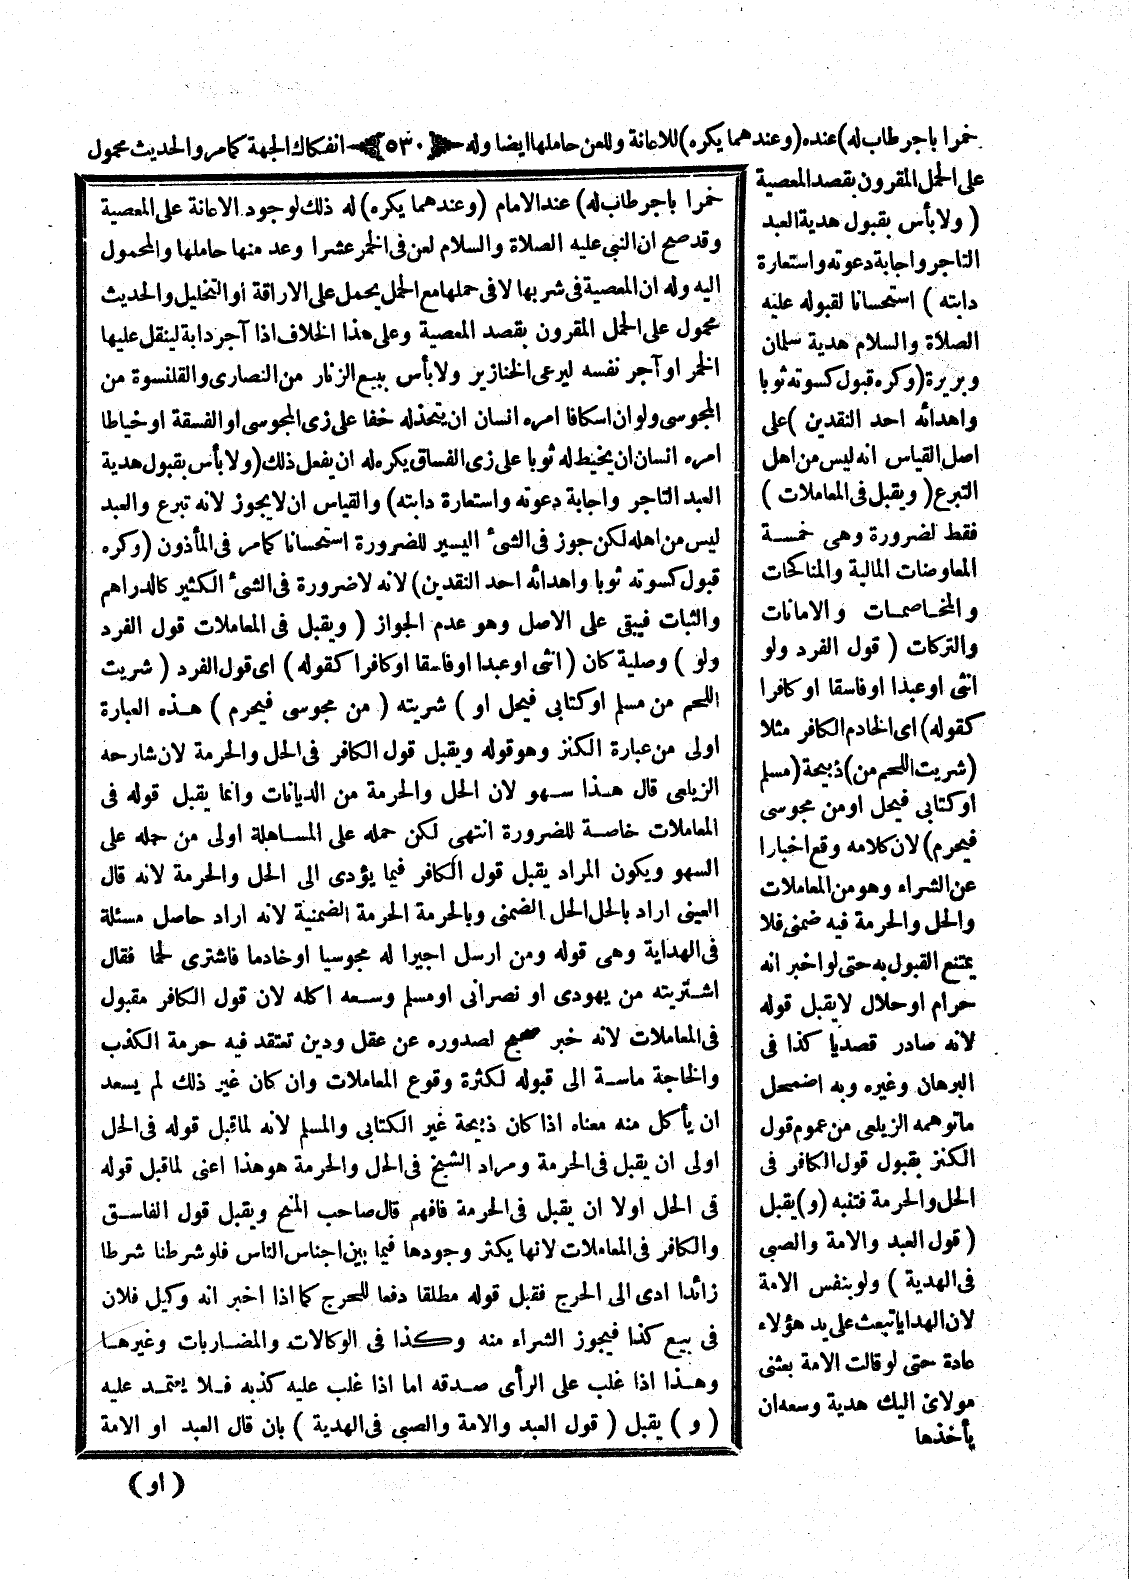 خمرا باجر طاب له) عنده (وعندهما يكره) للاعانة وللعن حاملها ايضا وله ﴿٥٣٠﴾ انفكاك الجهة كما مر والحديث محمول
على الحمل المقرون بقصد المعصية
( ولا بأس بقبول هدية العبد
التاجر واجابة دعوته واستعارة
دابته ) استحسانا لقبوله عليه
الصلاة والسلام هدية سلمان
وبريرة (وكره قبول كسوته ثوبا
واهدائه احد النقدين )على
اصل القياس انه ليس من اهل
التبرع( ويقبل فى المعاملات )
فقط لضرورة وهى خمسة
المعاوضات المالية والمناكحات
والمخاصمات والامانات
والتركات ( قول الفرد ولو
انثى اوعبدا اوفاسقا اوكافرا
كقوله) اى الخادم الكافر مثلا
(شريت اللحم من) ذبيحة (مسلم
اوكتابى فيحل اومن مجوسى
فيحرم) لان كلامه وقع اخبارا
عن الشراء وهو من المعاملات
والحل والحرمة فيه ضمنى فلا
يمتنع القبول به حتى لو اخبر انه
حرام اوحلال لا يقبل قوله
لانه صادر قصديا كذا فى
البرهان وغيره وبه اضمحل
ماتوهمه الزيلعى من عموم قول
الكنز بقبول قول الكافر فى
الحل والحرمة فتنبه (و)يقبل
( قول العبد والامة والصبى
فى الهدية ) ولو بنفس الامة
لان الهدايا تبعث على يد هؤلاء
عادة حتى لو قالت الامة بعثنى
مولائ اليك هدية وسعه ان
يأخذها
خمرا باجر طاب له) عند الامام (وعندهما يكره) له ذلك لوجود الاعانة على المعصية
وقد صح ان النبى عليه الصلاة والسلام لعن فى الخمر عشرا وعد منها حاملها والمحمول
اليه وله ان المعصية فى شربها لا فى حملها مع الحمل يحمل على الاراقة او التخليل والحديث
محمول على الحمل المقرون بقصد المعصية وعلى هذا الخلاف اذا آجر دابة لينقل عليها
الخمر او آجر نفسه ليرعى الخنازير ولا بأس ببيع الزنار من النصارى والقلنسوة من
المجوسى ولو ان اسكافا امره انسان ان يتخذ له خفا على زى المجوسى او الفسقة اوخياطا
امره انسان ان يخيط له ثوبا على زى الفساق يكره له ان يفعل ذلك (ولا بأس بقبول هدية
العبد التاجر واجابة دعوته واستعارة دابته) والقياس ان لا يجوز لانه تبرع والعبد
ليس من اهله لكن جوز فى الشئ اليسير للضرورة استحسانا كما مر فى المأذون (وكره
قبول كسوته ثوبا واهدائه احد النقدين) لانه لا ضرورة فى الشئ الكثير كالدراهم
والثبات فيبقى على الاصل وهو عدم الجواز ( ويقبل فى المعاملات قول الفرد
ولو ) وصلية كان ( انثى اوعبدا اوفاسقا اوكافرا كقوله ) اى قول الفرد ( شريت
اللحم من مسلم اوكتابى فيحل او ) شريته ( من مجوسى فيحرم ) هذه العبارة
اولى من عبارة الكنز وهو قوله ويقبل قول الكافر فى الحل والحرمة لان شارحه
الزيلعى قال هذا سهو لان الحل والحرمة من الديانات وانما يقبل قوله فى
المعاملات خاصة للضرورة انتهى لكن حمله على المساهلة اولى من حمله على
السهو ويكون المراد يقبل قول الكافر فيما يؤدى الى الحل والحرمة لانه قال
العينى اراد بالحل الحل الضمنى وبالحرمة الحرمة الضمنية لانه اراد حاصل مسئلة
فى الهداية وهى قوله ومن ارسل اجيرا له مجوسيا اوخادما فاشترى لحما فقال
اشتريته من يهودى او نصرانى اومسلم وسعه اكله لان قول الكافر مقبول
فى المعاملات لانه خبر صحيح لصدوره عن عقل ودين تعتقد فيه حرمة الكذب
والحاجة ماسة الى قبوله لكثرة وقوع المعاملات وان كان غير ذلك لم يسعد
ان يأكل منه معناه اذا كان ذبيحة غير الكتابى والمسلم لانه لما قبل قوله فى الحل
اولى ان يقبل فى الحرمة ومراد الشيخ فى الحل والحرمة هو هذا اعنى لما قبل قوله
فى الحل اولا ان يقبل فى الحرمة فافهم قال صاحب المنح ويقبل قول الفاسق
والكافر فى المعاملات لانها يكثر وجودها فيما بين اجناس الناس فلو شرطنا شرطا
زائدا ادى الى الحرج فقبل قوله مطلقا دفعا للحرج كما اذا اخبر انه وكيل فلان
فى بيع كذا فيجوز الشراء منه وكذا فى الوكالات والمضاربات وغيرها
وهذا اذا غلب على الرأى صدقه اما اذا غلب عليه كذبه فلا يعتمد عليه
( و ) يقبل ( قول العبد والامة والصبى فى الهدية ) بان قال العبد او الامة
( او )